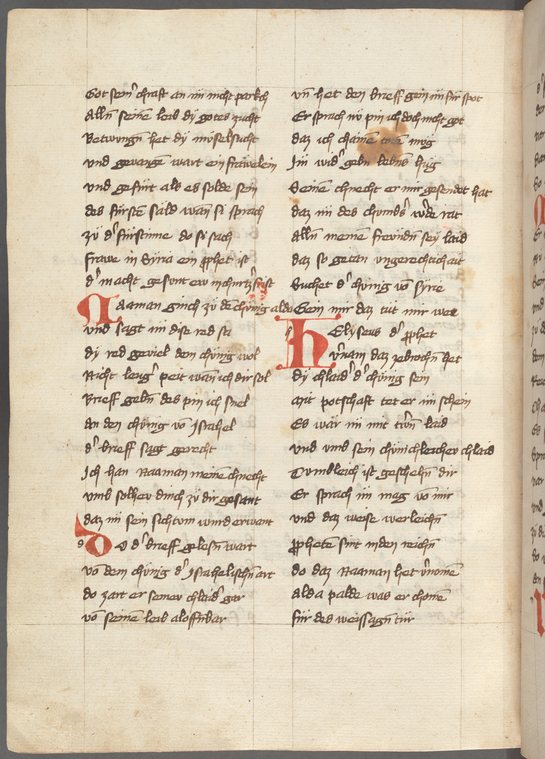 Got sein' chraft an im nicht parkch
Alln seinē leib dy gotes zucht
Betwungn̄ het dy miselsucht
und gevangē wart ein frawelein
und gefurt als es solde sein
des furstē sald wan si sprach
zu d' furstinne do si sach
frawe in Siria ein p̱phet ist
d' macht gesunt ew in churtz' frist
Naaman ginch zu dē chunig aldo
und sagt im dise red so
dy red geviel dem chunig wol
Nicht leng' peit wan ich dir sol
Brieff gebn̄ des pin ich snel
an den chunig vō Israhel
d' brieff sagt gerecht
Ich han Naaman meinē chnecht
umb solhew dinch zu dir gesant
daz im sein sichtum wird erwant
Do d' brieff gelesn̄ wart
vō dem chunig d' Israhelischn̄ art
do zart er seinew chlaid' gar
vō seinē leib aloffnbar
uñ het den brieff gein im für spot
Er sprach nu pin ich doch nicht got
daz ich chainē mög
Im wid' gebn̄ lebns hüg
Seinē chnecht er mir gesendet hat
daz im des chumbs' w'de rat
Alln̄ meinē frewndn̄ sey laid
daz so getan ungerechtichait
Suchet d' chunig vō Syre
Gein mir daz tut mir wee
Helyseus d' p̱phet
v'nam daz zebrochn̄ het
dy chlaid' d' chunig sein
mit potschaft tet er im schein
Es wär im mit trwn̄ laid
und umb sein chünichleichew chlaid
Tumbleich ist geschehn̄ dir
Er sprach im mag vō mir
und daz weise werleichn̄
p̱phetē sint in den reichn̄
do daz Naaman het v'nomē
Alda palde was er chomē
für des weissagn̄ tür